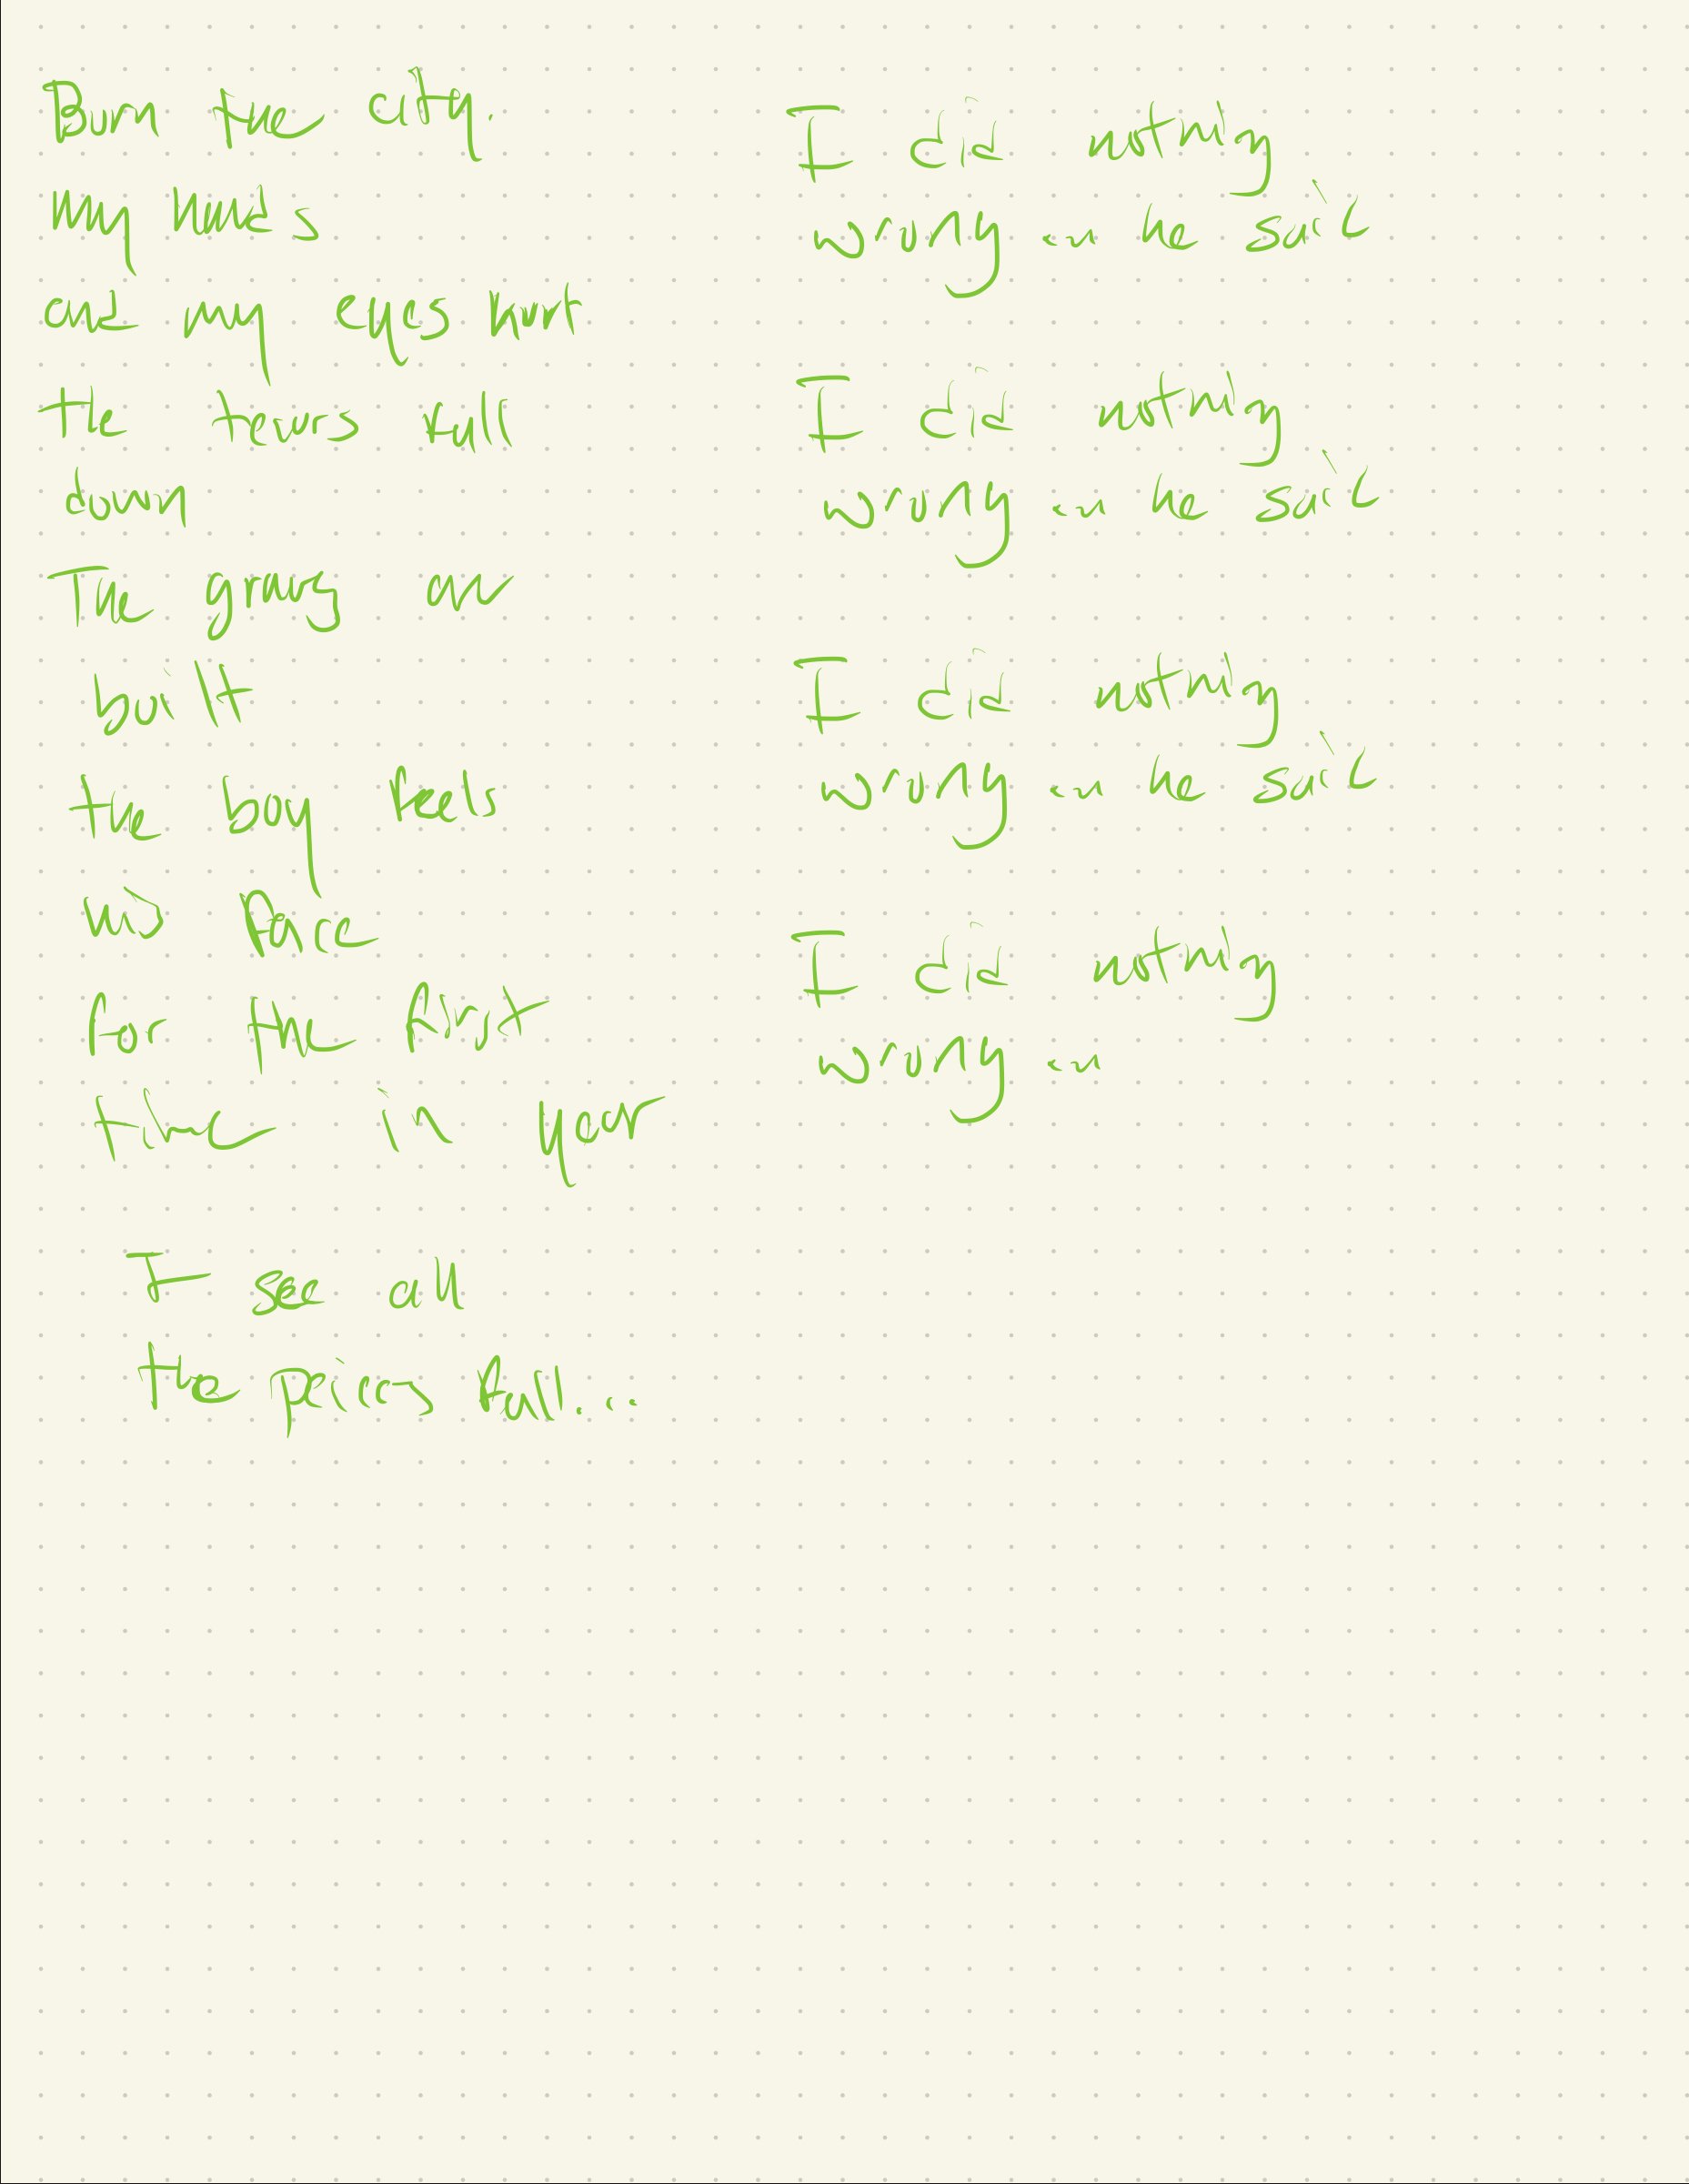 Burn the city.
my hands
and my eyes hurt
the tears fall
down
The graves are
built
the boy feels
his face
for the first
time in year
I see all
the peices fall...
I did nothing
wrong ... he said
I did nothing
wrong ... he said
I did nothing
wrong ... he said
I did nothing
wrong ...